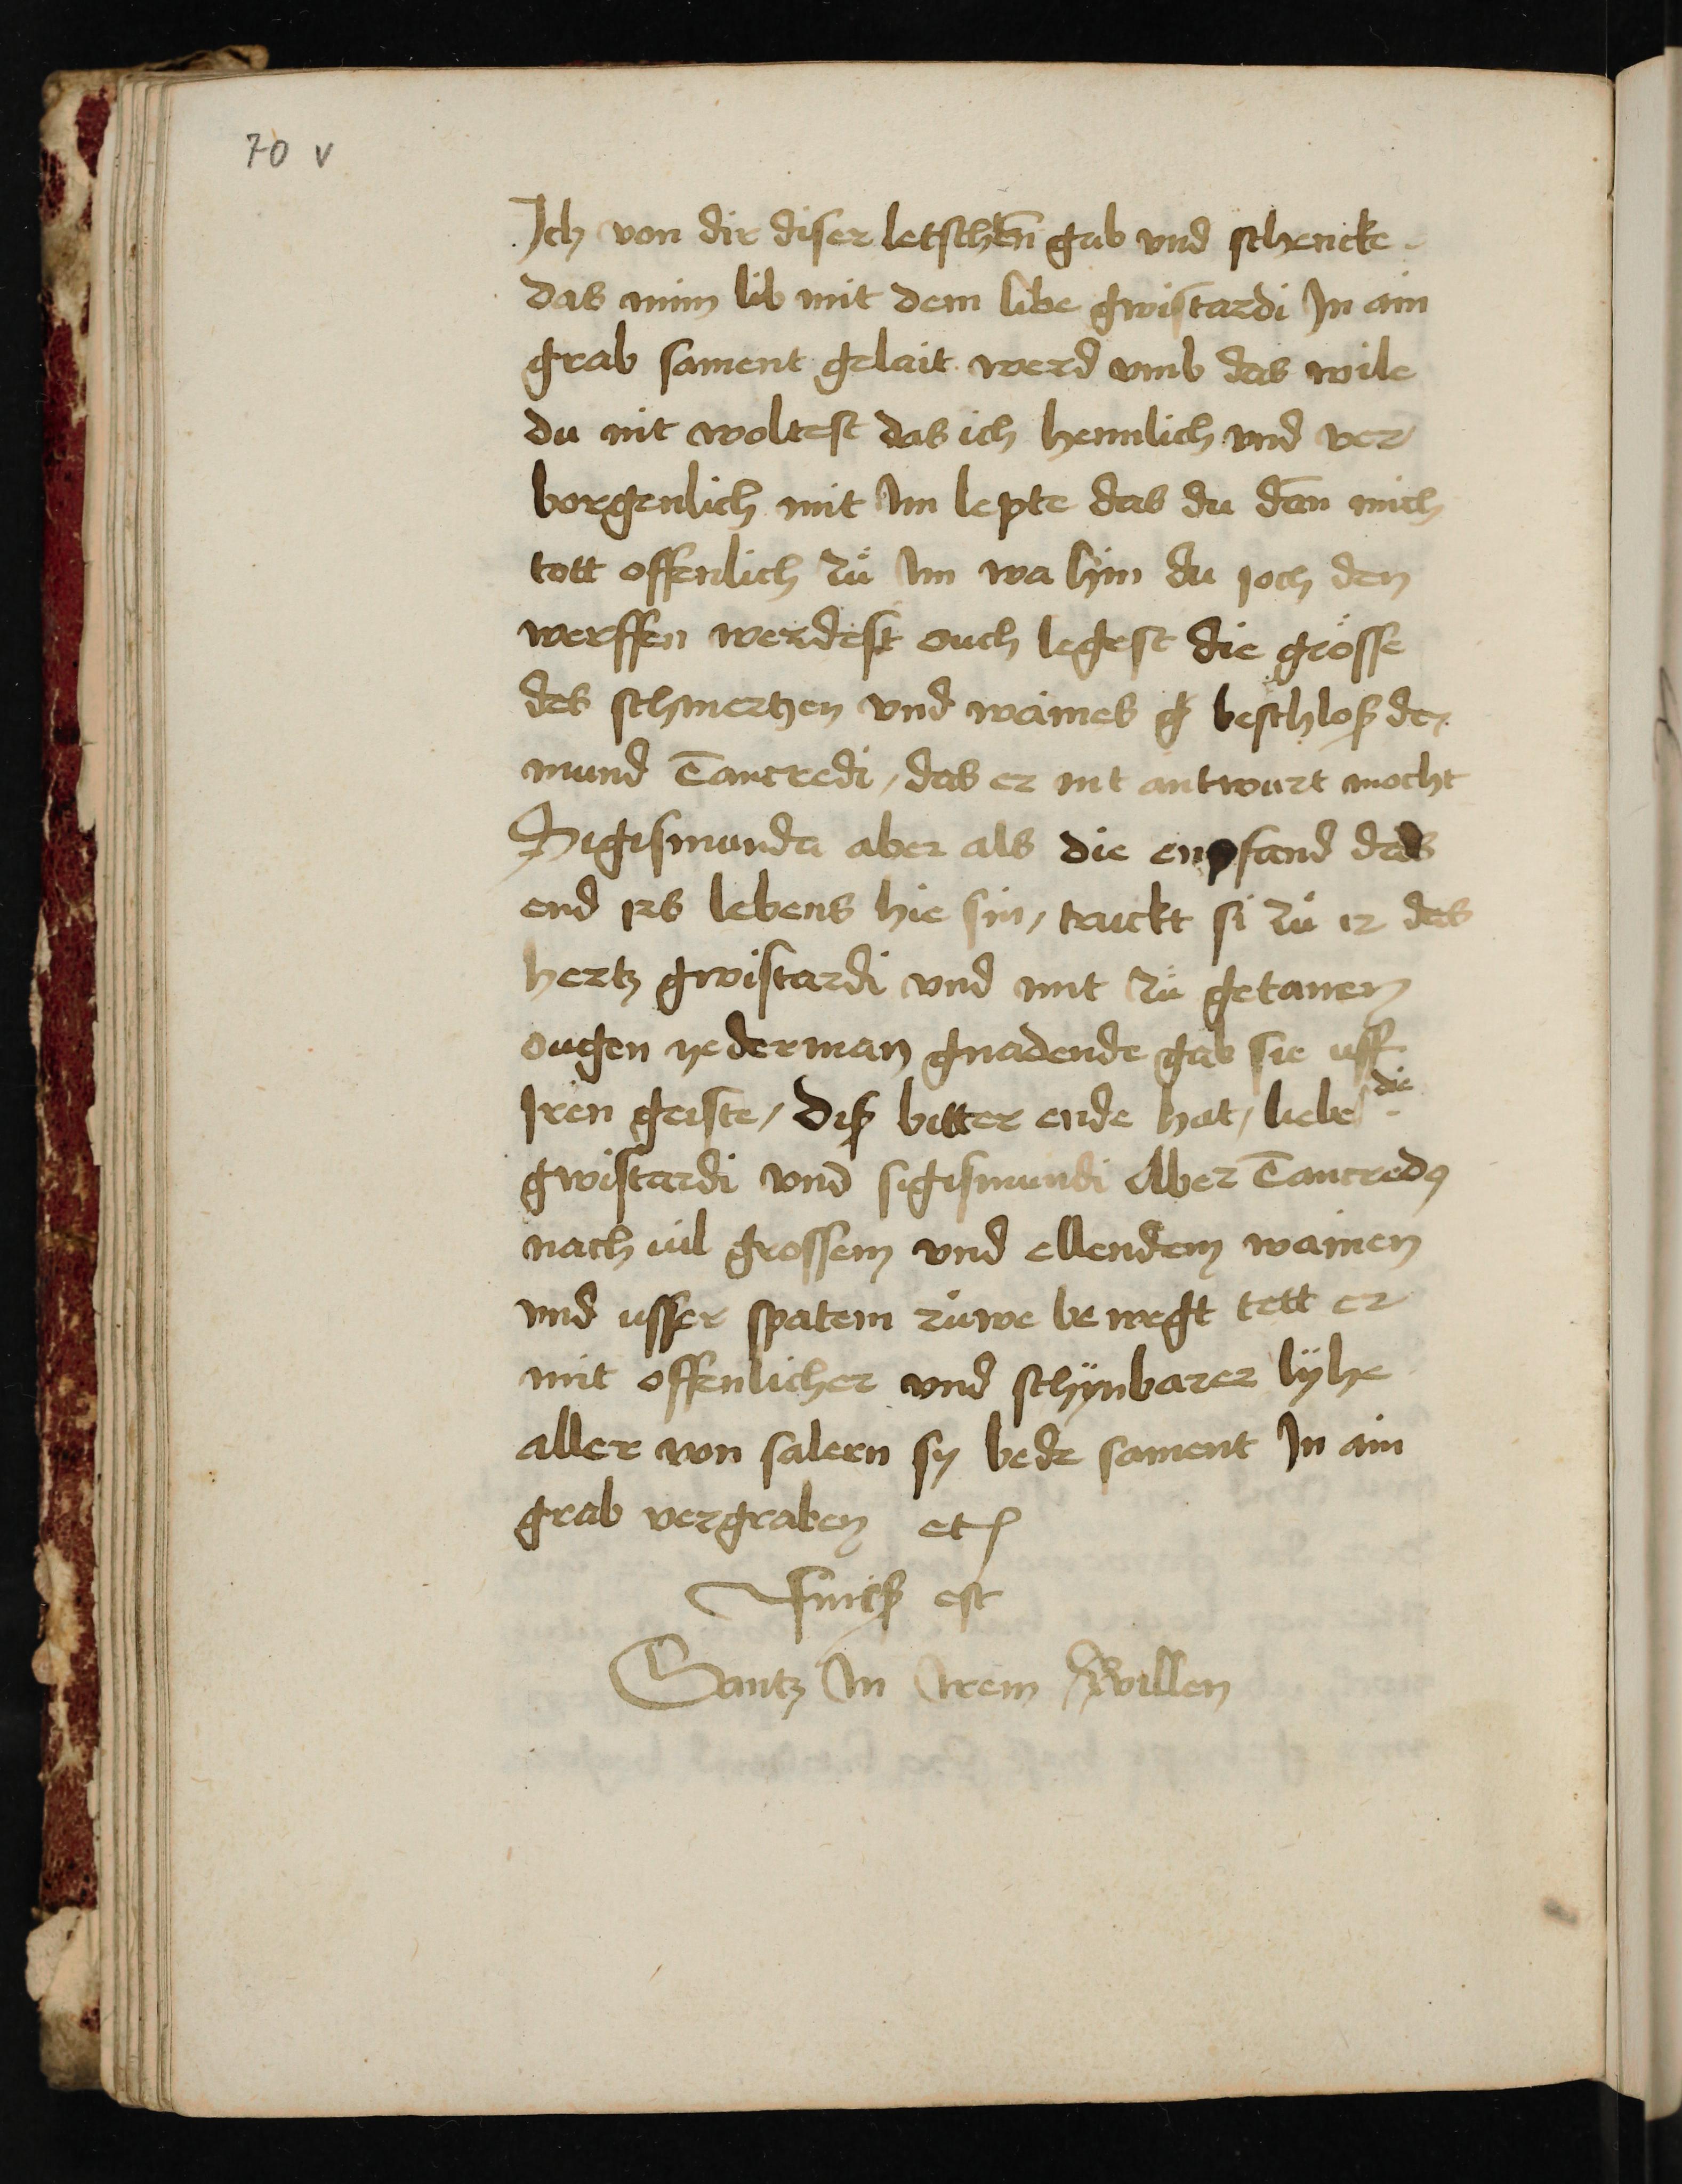 70 v
Ich von dir diser letschten gab vnd schencke
das minn lib mit dem libe gwistardi In ain
grab sament gelait werd vmb das wile
du nit woltest das ich hemlich vnd ver
borgenlich mit Im lepte das du dan̄ mich
tott offenlich zů Im wa hin du joch den
werffen werdest ouch legest die grösse
des schmertzen vnd waines beschloß der
mund Tancredi / das er nit antwurt mocht
Sigismunda aber als die enpfand das
end irs lebens hie sin / truckt si zů ir das
hertz gwistardi vnd mit zů getanen
ougen yederman gnadende gab sie uff
Iren geiste / diß bitter ende hat / liebe die
gwistardi vnd sigismundi Aber Tancredꝰ
nach uil grossem vnd ellendem wainen
vnd usser spatem růwe bewegt tett er
mit offenlicher vnd schÿnbarer lÿhe
aller von salern sy bede sament In ain
grab vergraben etc
est
Gantz In Irem Willen